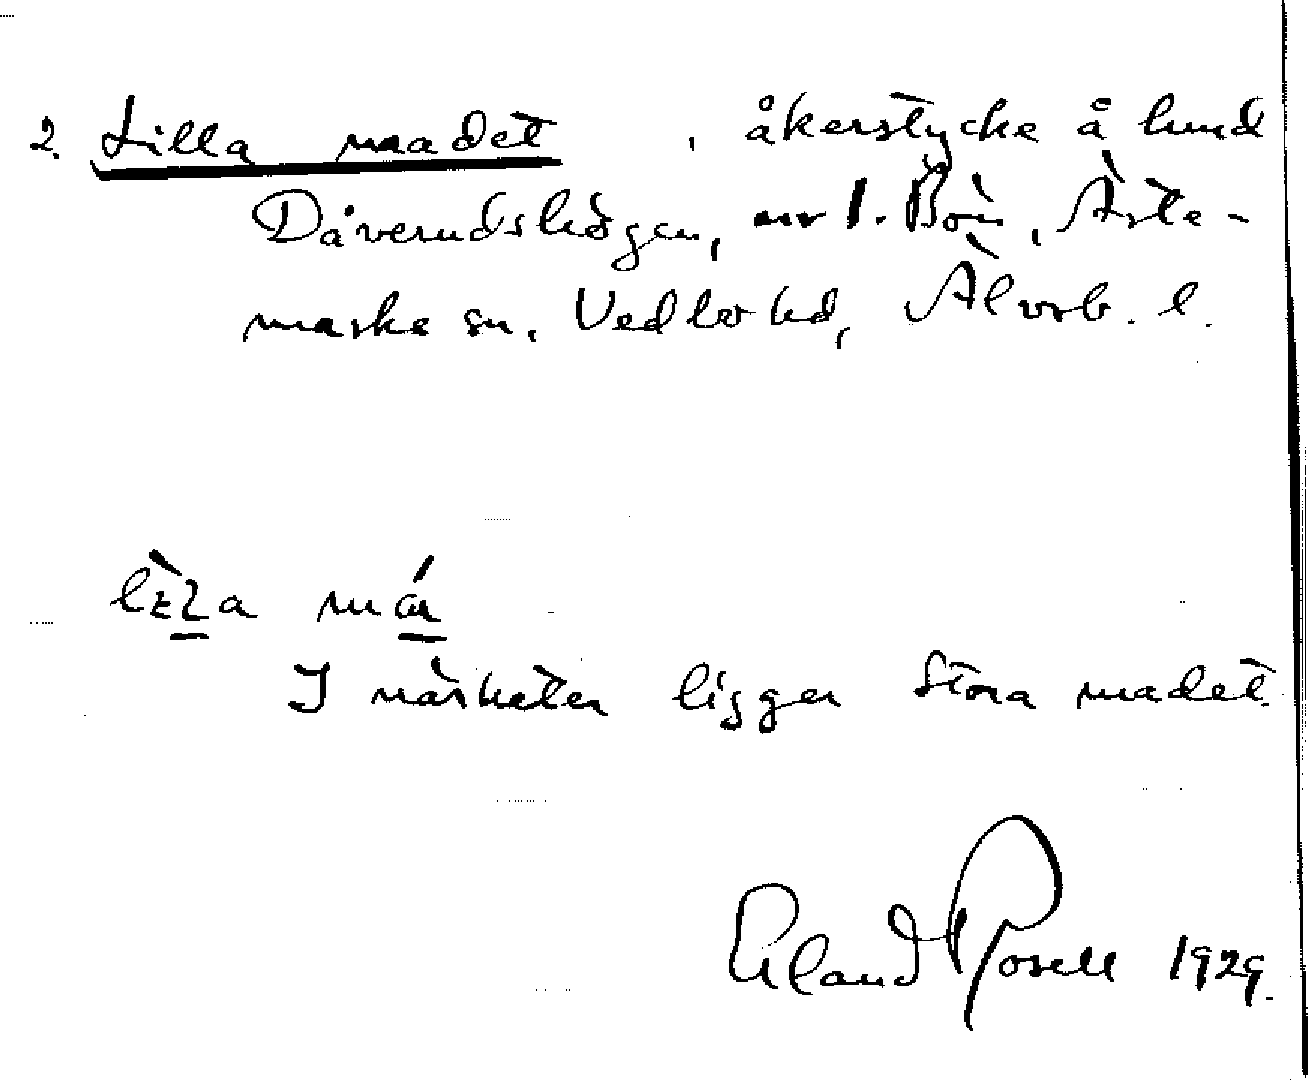 2. Lilla madet , åkerstycke å lund
Dåverudshögen, nr 1. Bön, Ärte-
marks sn. Vedbo hd, Älvsb. l.
lɛla má
I närheten ligger Stora madet.
Erland Rosell 1929.